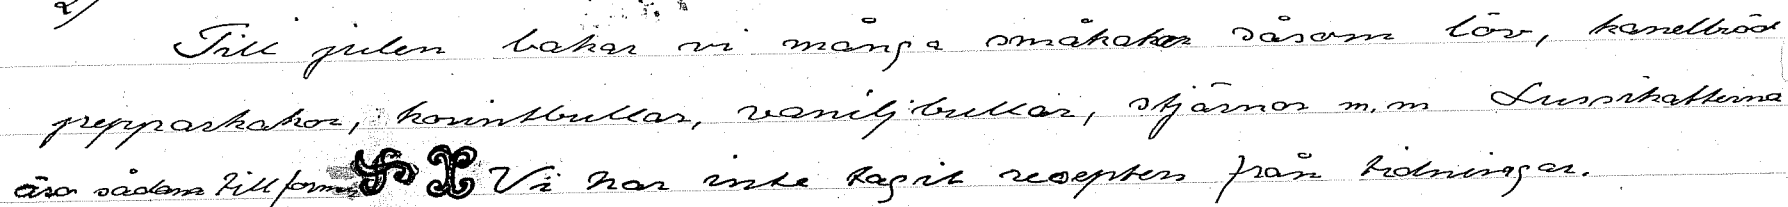 2)
Till julen bakar vi många småkakor såsom löv, kanelbröd
pepparkakor, korintbullar, vaniljbullar, stjärnor m.m Lussikatterna
äro sådana till formen Vi har inte tagit recepten från tidningar.